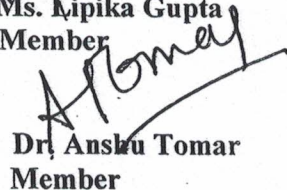 Ms. Lipika Gupta
Member
Dr. Anshu Tomar
Member